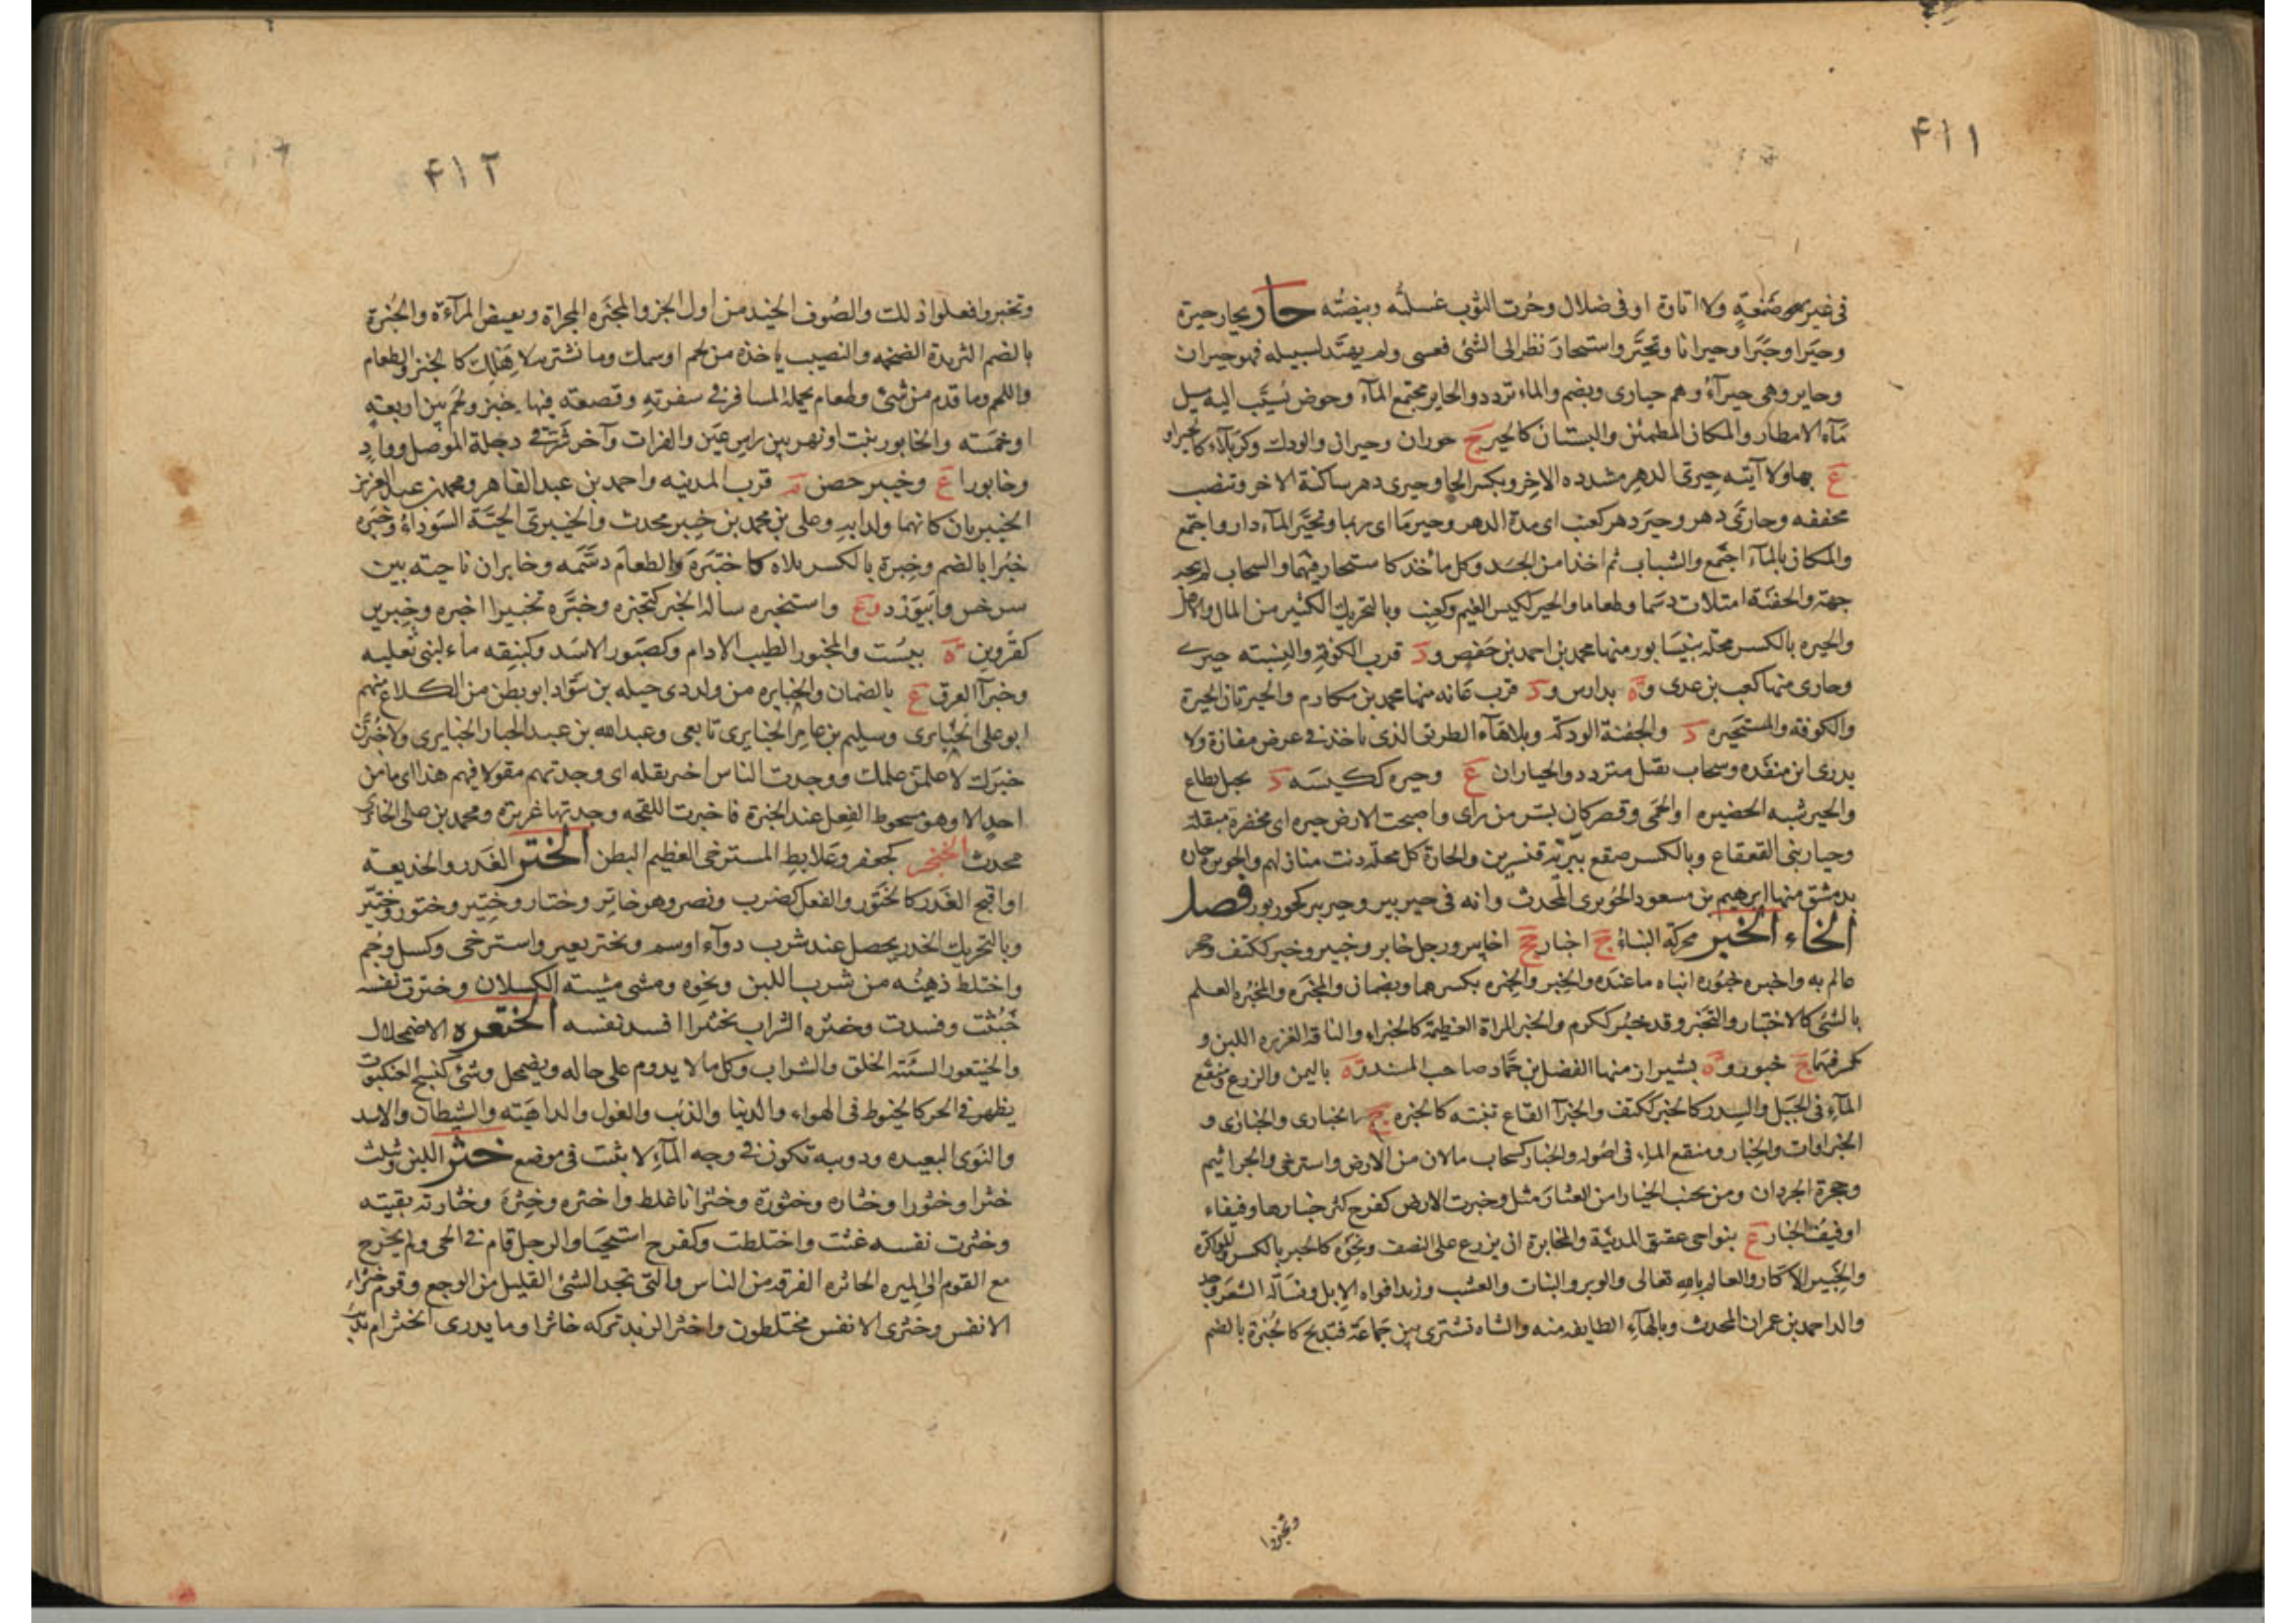 ٤١١
في غير صنعة ولا اتارة او في ضلال وحُرت الثوب غسلته وبيضته حار يحار حيرة
وحيَرا وحَيَرا وحيرانا وتحيَّر واستحار نظر الى الشئ فعسى ولم يهتد لسبيله فهو حيران
وحاير وهى حيرآء وهم حيارى ويضم والماء تردد والحاير مجتمع المآء وحوض يُسيَّب اليه سيل
مآء الامطار والمكان المطمئن والبستان كالحير ج حوران وحيران والودك وكربلاء كالحيراء
ع بها ولا آتيه حِيرى الدهر مشدده الاخر وبكسر الحا وحيرى دهر ساكنة الاخر وتنصب
مخففه وحارىَّ دهر وحِيَر دهر كعنب اى مدة الدهر وحير ما اى ربما وتحيَّر المآء دار واجتمع
والمكان بالمآء اجتمع والشباب ثم اخذا من الجسد كل ماخذ كاستحار فيهما والسحاب لم يتجه
جهة والجفنة امتلات دسما وطعاما والحير ككيس الغيم وكعنب وبالتحريك الكثير من المال والاهل
والحيره بالكسر محله بنيسابور منها محمد بن احمد بن حفص و د قرب الكوفة والنسبته حيرى
وحارى منها كعب بن عدى و ة بدارس و د قرب عانه منها محمد بن مكارم والحيرتان الحيرة
والكوفه والمستحيره د والجفنة الودكه وبلا هاء الطريق الذى ياخذ في عرض مفازة ولا
يدرى اين منفذه وسحاب ثقيل متردد والحياران ع وحيره ككيسه د بجبل نطاع
والحير شبه الحضيره او الحمى وقصر كان بسر من راى واصبحت الارض حيره اى مخضرة مبقلة
وحيار بني القعقاع وبالكسر صقع ببرّية قنسرين والحارة كل محله دنت منازلهم والحويره حارة
بدمشق منها ابرهيم بن مسعود الحُويرى المحدث وانه في حير بير وحير بير كحور بور فصل
الخاء الخبر محركة النباءُ ج اخبار جج اخابير ورجل خابر وخبير وخبر ككتف وجحر
عالم به واخبره خبُوره انباه ما عنده والخِبر والخِبره بكسرهما ويضمان والمخبَره والمخبُره العلم
بالشئ كالاختبار والتخبر وقد خبُر ككرم والخبر المزادة العظيمة كالخبراء والناقة الغزيره اللبن و
يكسر فيهما ج خبور و ة بشيراز منها الفضل بن حَمّاد صاحب المسند و ة باليمن والزرع ومنقع
المآء في الجبل والسِدر كالخبر ككتف والخبرآ القاع تنبته كالخبره ج الخبارى والخبازى و
الخبراوات والخِبار ومنقع الماء في اصُوله والخبار كسحاب ما لان من الارض واسترخى والجراثيم
وجحرة الجرذان ومن تجنب الخبار امن العثار مثل وخبرت الارض كفرح كثر خبارها وفيفاء
او فيف الخبار ع بنواحى عقيق المدينة والمخابرة ان يزرع على النصف ونحوه كالخبر بالكسر والمواكرة
والخَبير الاكّار والعالم بالله تعالى والوبر والنبات والعشب وزبد افواه الابل ونسالة الشعر وجد
والد احمد بن عمران المحدث وبالهآء الطايفه منه والشاه تشترى بين جماعَة فتذبح كالخُبرة بالضم
وتخبروا
٤١٢
وتخبروا فعلوا ذلك والصُوف الجيد من اول الجز والمخبَره المخراة ونقيض المرآءة والخُبْرة
بالضم الثريدة الضخمه والنصيب ياخذه من لحم او سمك وما تشتريه لاهلك كالخبز والطعام
واللحم وما قدم من شئ وطعام يحمله المسافر في سفرتِه وقصعته فيها خبز ولحم بين اربعة
او خمسَته والخابور نبت او نهر بين راس عَين والفرات وآخر شرقى دجلة الموصل وواد
وخابورا ع وخيبر حصن م قرب المدينه واحمد بن عبد القاهر ومحمد بن عبد العزيز
الخيبريان كانهما ولدا به وعلى بن محمد بن خيبر محدث والخيبرىّ الحيَّة السَوداءُ وخَبَره
خُبْرا بالضم وخِبرة بالكسر بلاه كاختبَرَه والطعام دسَّمه وخابران ناحيته بين
سرخس وابيوَرْد و ع واستخبره ساله الخبر كتخبره وخبَّره تخبيرا اخبره وخِبرين
كقزوين ة ببُست والمخبور الطيب الادام وكصَبُور الاسَد وكنبِقه ماء لبنى ثعلبه
وخبرآ العرق ع بالصَمان والخبايره من ولد ذى جبله بن سَوَّاد ابو بطن من الكلاع منهم
ابو على الخبايرى وسليم بن عامر الخبايرى تابعى وعبد الله بن عبد الجبار الخبايرى ولاخبُرَّن
خبَرك لاعلمّن علمك ووجدت الناس اخبر تقله اى وجدتهم مقولا فيهم هذا اى ما من
احد الا وهو مسحوط الفعل عند الخبرة فاخبرت اللقحه وجدتها غزيرة ومحمد بن على الخابرى
محدث الخنجر كجعفر وعلابط المسترخى العظيم البطن الختر الغَدر والخديعة
او اقبح الغَدر كالخُتور والفعل كضرب ونصر وهو خاتر وختار وختِير وختور وخِتّير
وبالتحريك الخدر يحصل عند شرب دوآء او سم وتختر تفتر واسترخى وكسل وحُم
واختلط ذهنُه من شرب اللبن ونحوه ومشى مشيته الكسلان وخترت نفسه
خَبُثت وفسدت وختره الشراب تختيرا افسد نفسه الختعره الاضمحلال
والخيتعور السئة الخلق والشراب وكل ما لا يدوم على حاله ويضمحل وشئ كنسج العنكبوت
يظهر في الحر كالخيوط في الهواء والدنيا والذئب والغول والداهيَته والشيطان والاسد
والنَوى البعيده ودويبه تكون في وجه المآء لا تثبت في موضع خثر اللبن ويُثلث
خثرا وخثورا وخثاره وخثورة وخثرانا غلظ واخثره وخثَّره وخثارته بقيته
وخثرت نفسه غثت واختلطت وكفرح استحيَا والرجل اقام في الحى ولم يخرج
مع القوم الى الميره الخاثره الفرقه من الناس والتى تجد الشئ القليل من الوجع وقوم خثراء
الانفس وخثرى الانفس مختلطون واخثر الزبد تركه خاثرا وما يدرى ايُخثر ام يذيب